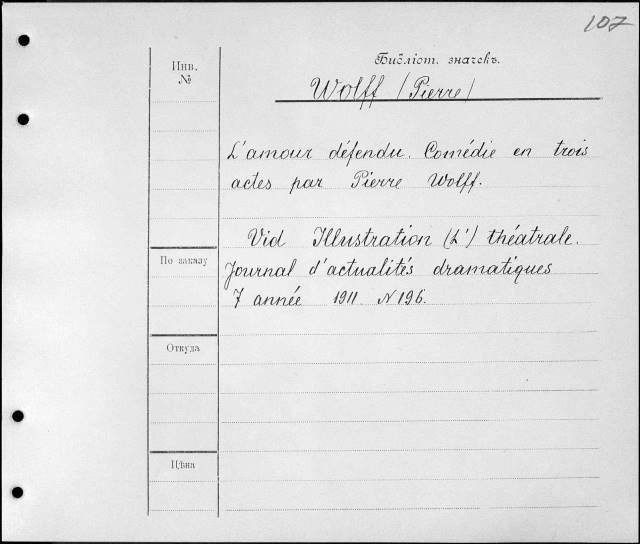 107
Библіот. значекъ.
Инв.
№
Wolff (Pierre)
L'amour défendu. Comédie en trois
actes par Pierre Wolff.
Vid Illustration (L') théatrale.
По заказу
Journal d'actualités dramatiques
7 année 1911 N 196.
Откуда
Цѣна